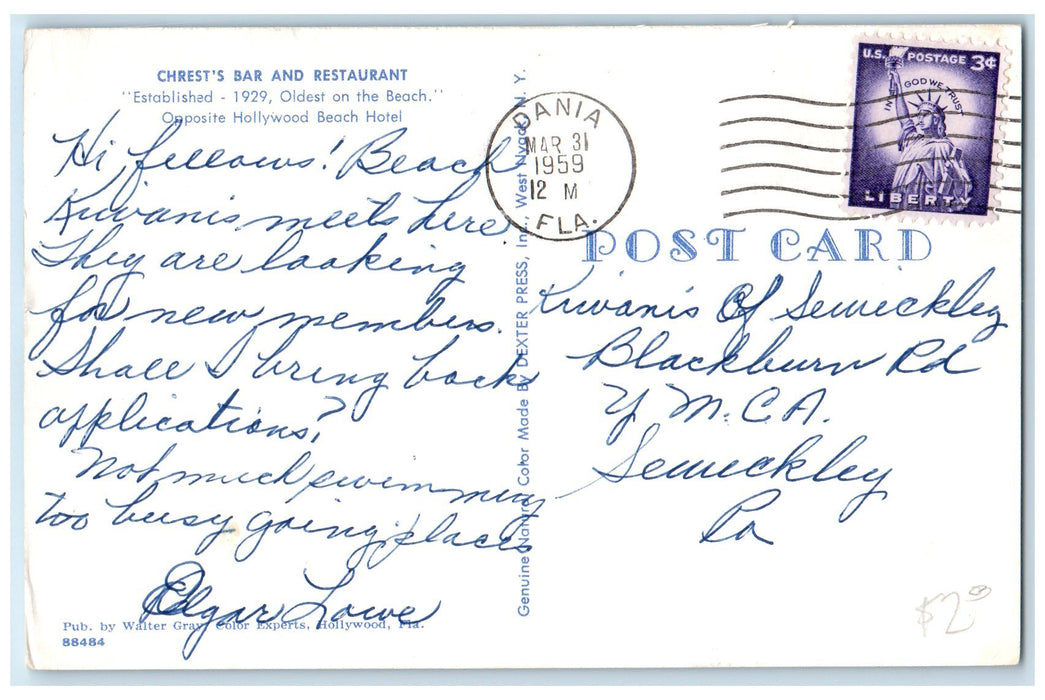 CHREST'S BAR AND RESTAURANT
"Established - 1929, Oldest on the Beach."
Opposite Hollywood Beach Hotel
Hi fellows! Beach
Kiwanis meets here
They are looking
for new members.
Shall I bring back
applications?
Not much swimming
too busy going places
Elgar Lowe
Pub. by Walter Gray, Color Experts, Hollywood, Fla.
88484
Genuine Natural Color Made By DEXTER PRESS, Inc., West Nyack, N. Y.
DANIA
MAR 31
1959
12 M
FLA.
U.S. POSTAGE 3¢
IN GOD WE TRUST
LIBERTY
POST CARD
Kiwanis Of Sewickley
Blackburn Rd
Y.M.C.A.
Sewickley
Pa
$2.00